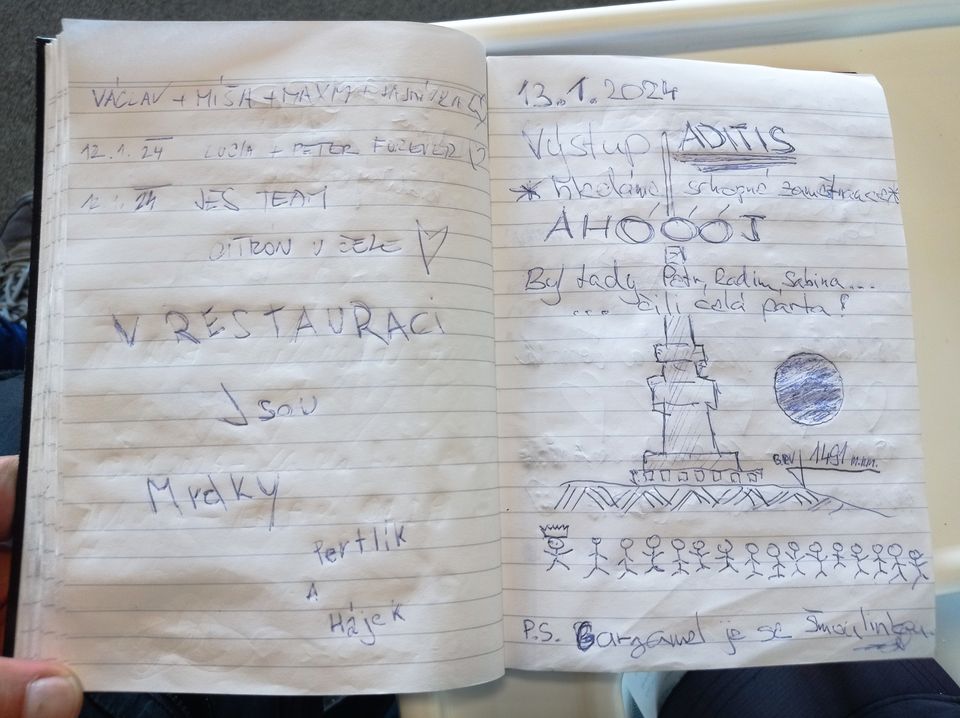 VÁCLAV + MÍŠA + MAXIM +
12.1.24 LUCIA + PETER
JES TEAM
CITRON V ČELE
V RESTAURACI
Jsou
Mrdky
Pertlík
A
Hájek
13.1.2024
Výstup ADITIS
* hledáme schopné zaměstnance *
AHOOOJ
Byl tady Petr, Radim, Sabina...
... čili celá parta!
BPV 1491 m.n.m.
P.S. Gargamel je se Šmoulinkou.